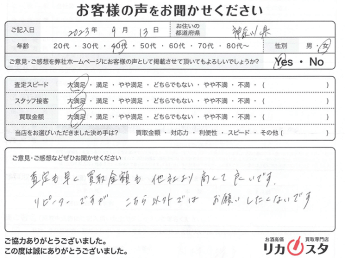 お客様の声をお聞かせください
ご記入日 2023年 9月 13日 お住いの都道府県 神奈川県
年齢 20代・30代・40代・50代・60代・70代・80代〜 性別 男・女
ご意見・ご感想を弊社ホームページにお客様の声として掲載させて頂いてもよろしいでしょうか? Yes・No
査定スピード 大満足・満足・やや満足・どちらでもない・やや不満・不満・( )
スタッフ接客 大満足・満足・やや満足・どちらでもない・やや不満・不満・( )
買取金額 大満足・満足・やや満足・どちらでもない・やや不満・不満・( )
当店をお選びいただきました決め手は? 買取金額・対応力・利便性・スピード・その他( )
ご意見・ご感想などぜひお聞かせください
査定も早く買取金額も他社より高くて良いです。
リピーターですが こちら以外ではお願いしたくないです
ご協力ありがとうございました。
この度は誠にありがとうございました。
お酒高価買取専門店
リカスタ